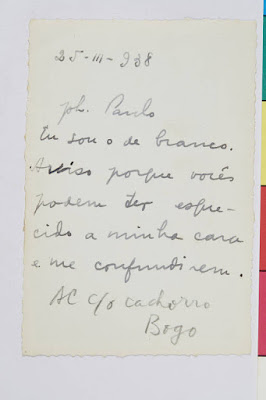 25-III-938
ph. Paulo
Eu sou o de branco.
Aviso porque vocês
podem ter esque-
cido a minha cara
e me confundirem.
AC c/o cachorro
Bogo